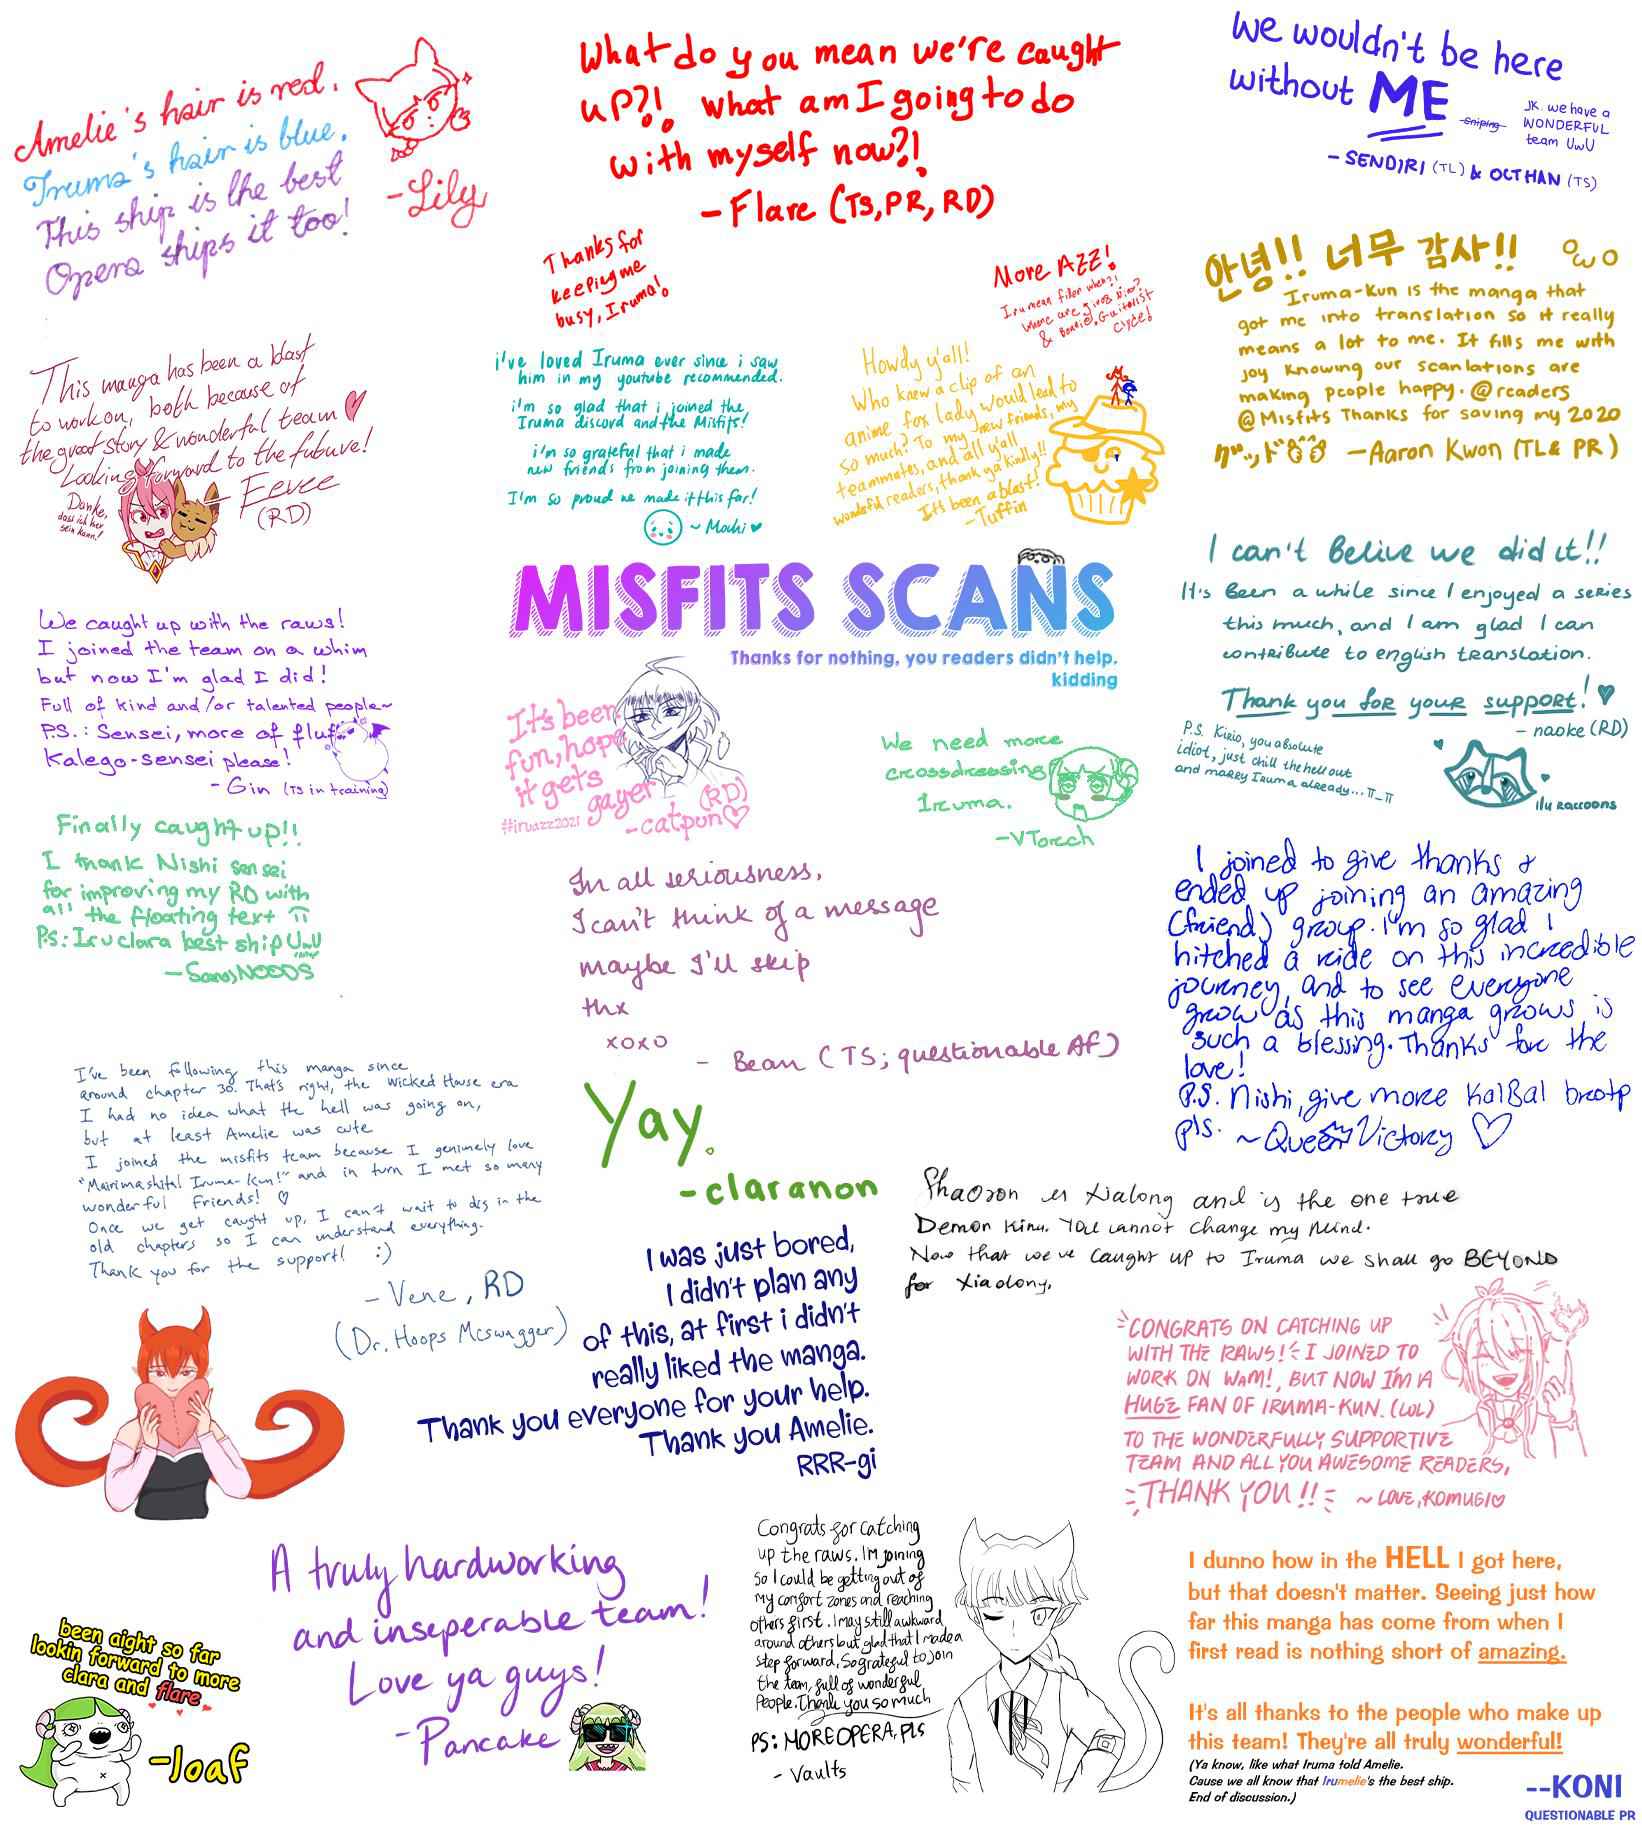 Amelie's hair is red.
Iruma's hair is blue.
This ship is the best
Opera ships it too!
-Lily
What do you mean we're caught
up?!, what am I going to do
with myself now?!
-Flare (TS, PR, RD)
Thanks for
keeping me
busy, Iruma!
More AZZ!
Iru mean filer when?!
& Bonnie, Guitarist
Clyde!
We wouldn't be here
without ME
sniping
JK. we have a
WONDERFUL
team UwU
- SENDIRI (TL) & OCTHAN (TS)
This manga has been a blast
to work on, both because of
the great story & wonderful team
Looking forward to the future!
- Eevee
(RD)
Danke,
dass ich hier
sein kann!
i've loved Iruma ever since i saw
him in my youtube recommended.
i'm so glad that i joined the
Iruma discord and the Misfits!
i'm so grateful that i made
new friends from joining them.
I'm so proud we made it this far!
~ Mochi ♥
Howdy y'all!
Who knew a clip of an
anime fox lady would lead to
so much? To my new friends, my
teammates, and all y'all
wonderful readers, thank ya kindly!!
It's been a blast!
-Tuffin
안녕!! 너무 감사!! OwO
Iruma-Kun is the manga that
got me into translation so it really
means a lot to me. It fills me with
joy knowing our scanlations are
making people happy. @readers
@Misfits Thanks for saving my 2020
グッド —Aaron Kwon (TL & PR)
MISFITS SCANS
Thanks for nothing, you readers didn't help.
kidding
We caught up with the raws!
I joined the team on a whim
but now I'm glad I did!
Full of kind and/or talented people~
P.S.: Sensei, more of fluff
Kalego-sensei please!
- Gin (TS in training)
It's been
fun, hope
it gets
gayer
#iruazz2021
(RD)
-catpun♡
We need more
crossdressing
Iruma.
-VTorch
I can't Belive we did it!!
It's Been a while since I enjoyed a series
this much, and I am glad I can
contribute to english translation.
Thank you for your support! ♥
- naoke (RD)
P.S. Kirio, you absolute
idiot, just chill the hell out
and marry Iruma already... π_π
ilu raccoons
Finally caught up!!
I thank Nishi sensei
for improving my RD with
all the floating text π
P.S: Iruclara best ship UwU
-SansNOODS
In all seriousness,
I can't think of a message
maybe I'll skip
thx
xoxo
- Bean (TS; questionable AF)
I joined to give thanks &
ended up joining an amazing
(friend) group. I'm so glad I
hitched a ride on this incredible
journey, and to see everyone
grow as this manga grows is
such a blessing. Thanks for the
love!
P.S. Nishi, give more KalBal brotp
pls. ~Queen Victory ♡
I've been following this manga since
around chapter 30. That's right, the Wicked House era
I had no idea what the hell was going on,
but at least Amelie was cute
I joined the misfits team because I genuinely love
"Mairimashita! Iruma-kun!" and in turn I met so many
wonderful friends! ♡
Once we get caught up, I can't wait to dig in the
old chapters so I can understand everything.
Thank you for the support! :)
- Vene, RD
(Dr. Hoops McSwagger)
Yay.
-claranon
Shaoron is Xialong and is the one true
Demon King. You cannot change my mind.
Now that we've caught up to Iruma we shall go BEYOND
for Xiaolong.
I was just bored,
I didn't plan any
of this, at first i didn't
really liked the manga.
Thank you everyone for your help.
Thank you Amelie.
RRR-gi
CONGRATS ON CATCHING UP
WITH THE RAWS! I JOINED TO
WORK ON WAM!, BUT NOW I'M A
HUGE FAN OF IRUMA-KUN. (LOL)
TO THE WONDERFULLY SUPPORTIVE
TEAM AND ALL YOU AWESOME READERS,
THANK YOU!! ~ LOVE, KOMUGI♡
A truly hardworking
and inseperable team!
Love ya guys!
-Pancake
been aight so far
lookin forward to more
clara and flare
-loaf
Congrats for catching
up the raws. I'm joining
so I could be getting out of
my comfort zones and reaching
others first. I may still awkward
around others but glad that I made a
step forward, So grateful to join
the team, full of wonderful
people. Thank you so much
PS: MORE OPERA, PLS
- Vaults
I dunno how in the HELL I got here,
but that doesn't matter. Seeing just how
far this manga has come from when I
first read is nothing short of amazing.
It's all thanks to the people who make up
this team! They're all truly wonderful!
(Ya know, like what Iruma told Amelie.
Cause we all know that Irumelie's the best ship.
End of discussion.)
--KONI
QUESTIONABLE PR